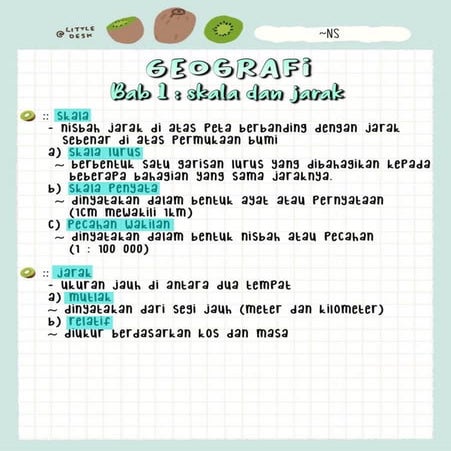 @ LITTLE
DESK
~NS
GEOGRAFi
Bab 1 : skala dan jarak
:: Skala
- nisbah jarak di atas Peta berbanding dengan jarak
sebenar di atas Permukaan bumi
a) Skala lurus
~ berbentuk satu garisan lurus yang dibahagikan kepada
beberapa bahagian yang sama jaraknya.
b) Skala Penyata
~ dinyatakan dalam bentuk ayat atau Pernyataan
(1cm mewakili 1km)
C) Pecahan Wakilan
~ dinyatakan dalam bentuk nisbah atau Pecahan
(1 : 100 000)
:: jarak
- ukuran jauh di antara dua tempat
a) mutlak
~ dinyatakan dari segi jauh (meter dan kilometer)
b) relatif
~ diukur berdasarkan kos dan masa